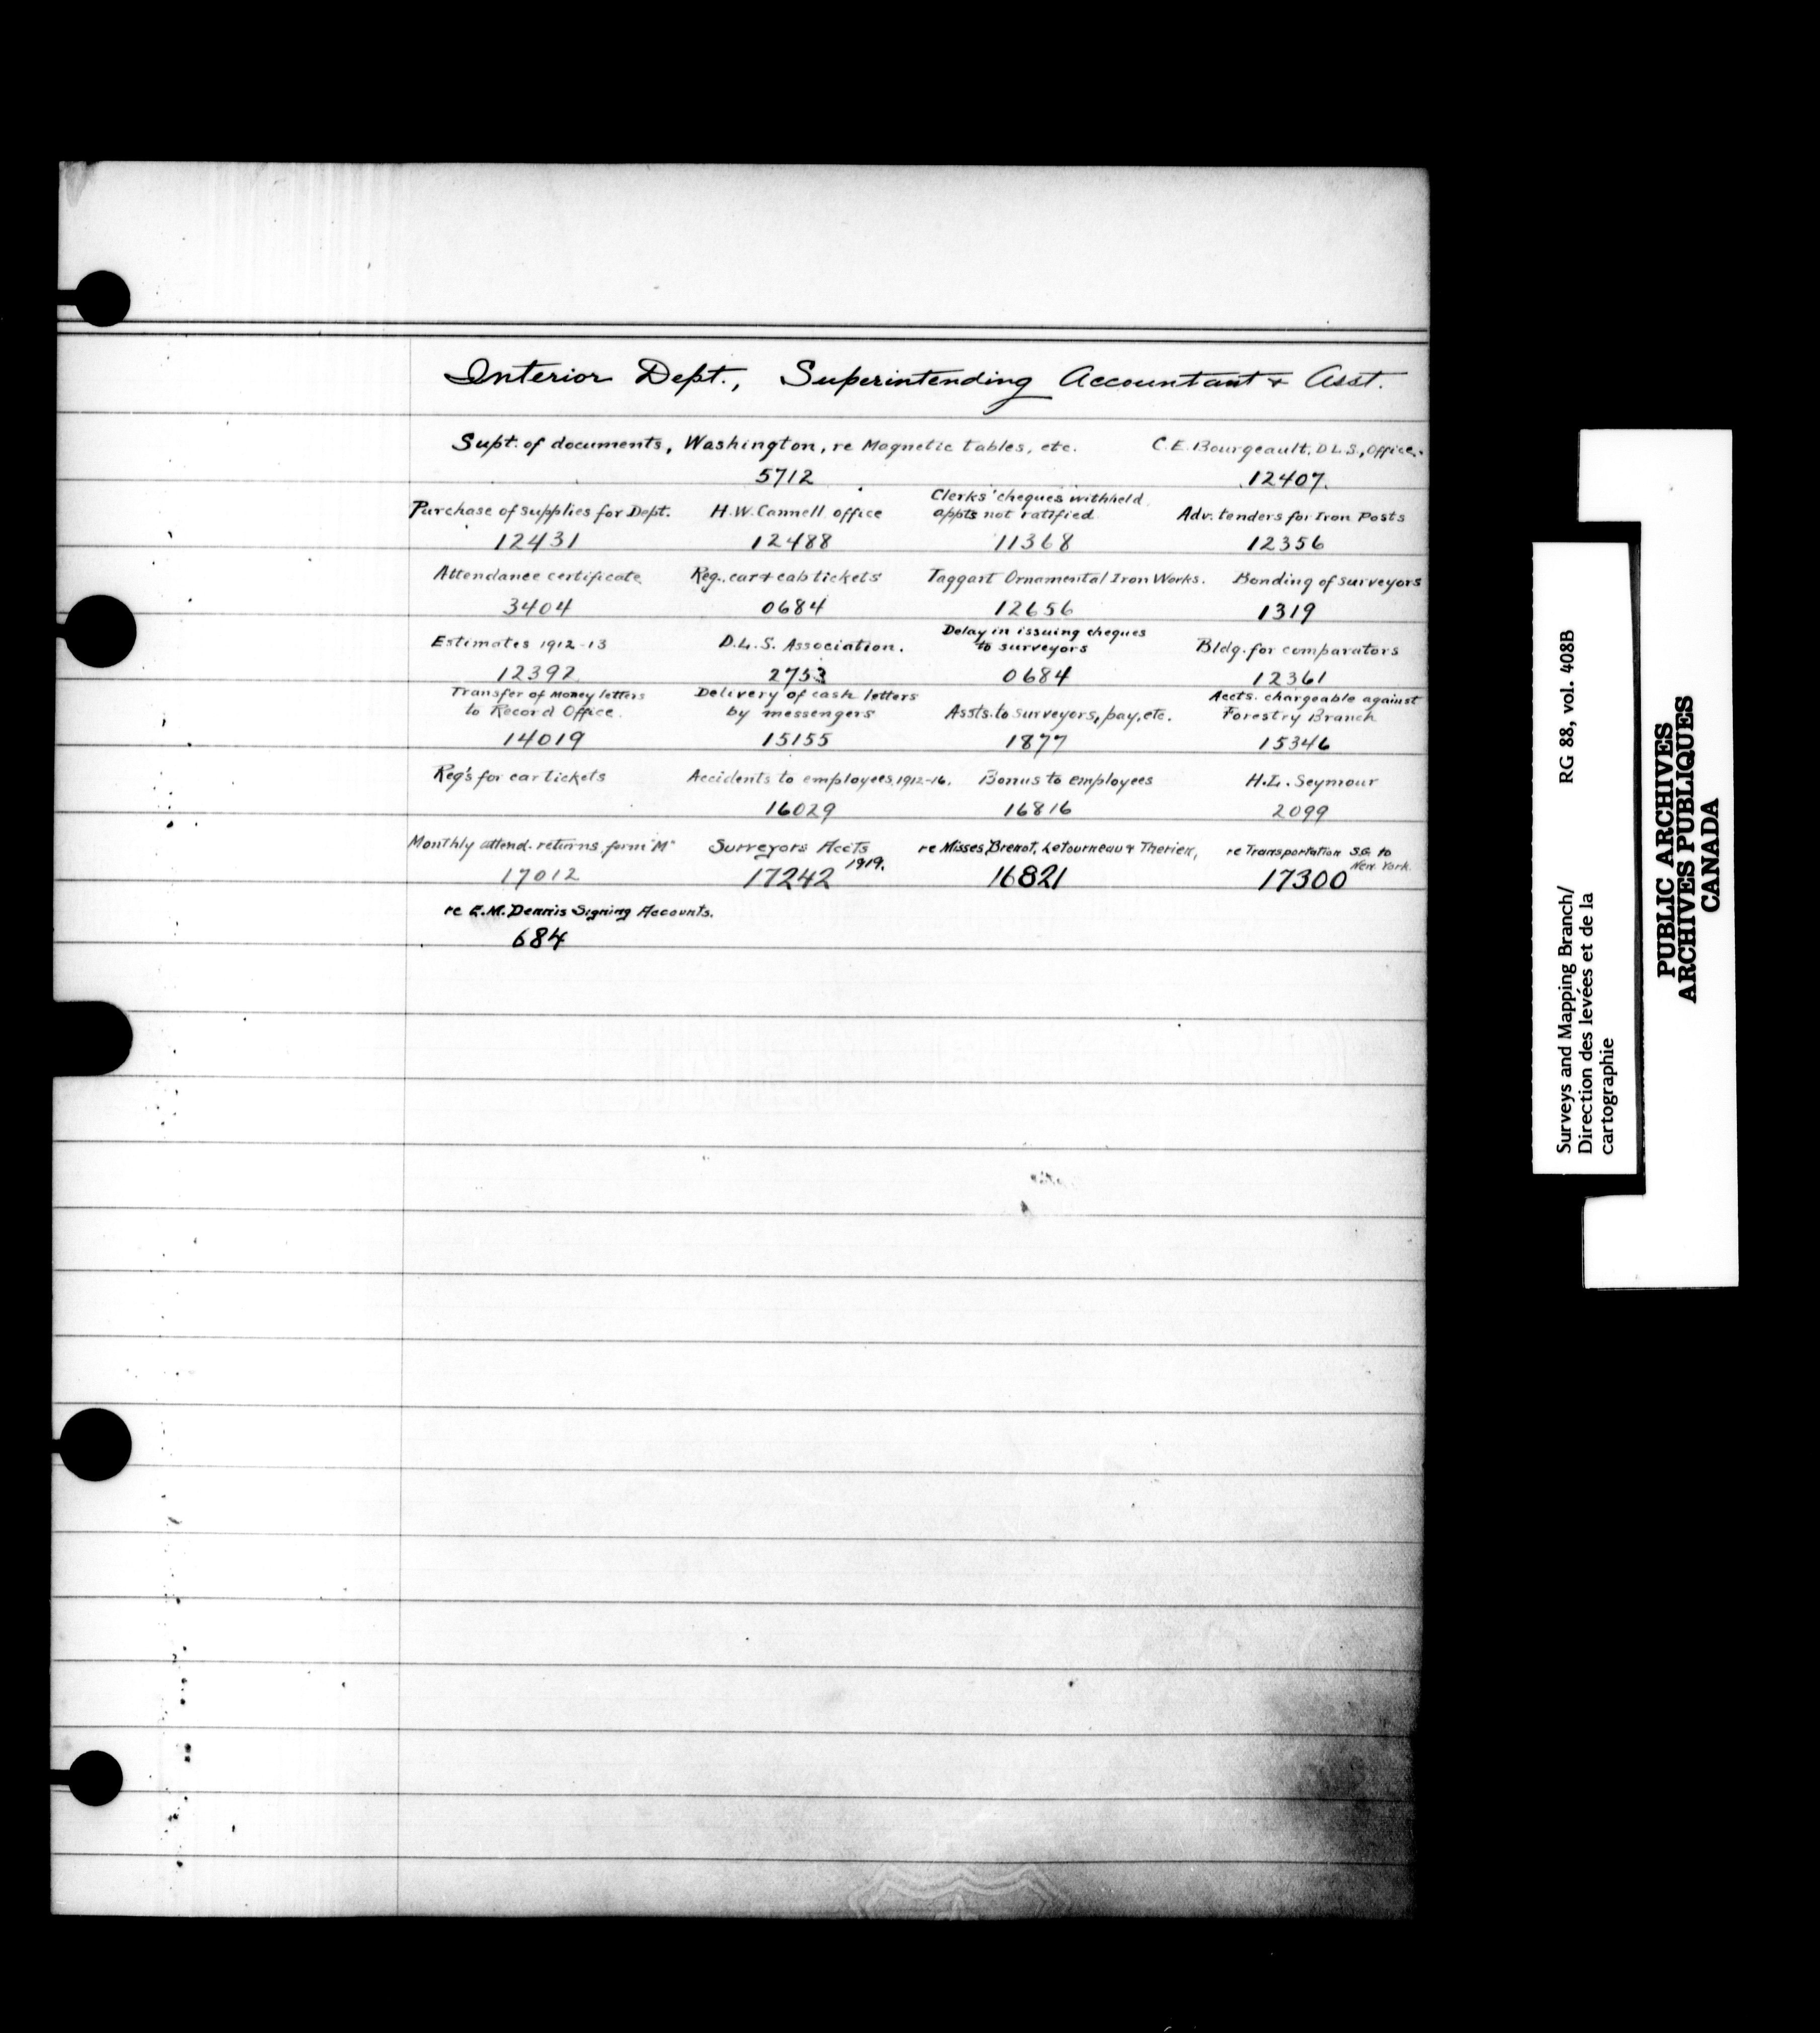 Interior Dept., Superintending Accountant & Asst.
Supt. of documents, Washington, re Magnetic tables, etc. C.E. Bourgeault, D.L.S., Office.
5712 12407.
Purchase of supplies for Dept. H.W. Cannell office Clerks' cheques withheld appts not ratified Adv. tenders for Iron Posts
12431 12488 11368 12356
Attendance certificate Reg. car & cab tickets Taggart Ornamental Iron Works. Bonding of surveyors
3404 0684 12656 1319
Estimates 1912-13 D.L.S. Association. Delay in issuing cheques to surveyors Bldg. for comparators
12392 2753 0684 12361
Transfer of Money letters to Record Office. Delivery of cash letters by messengers Assts. to surveyors, pay, etc. Accts. chargeable against Forestry Branch
14019 15155 1877 15346
Reg's for car tickets Accidents to employees, 1912-16. Bonus to employees H.L. Seymour
16029 16816 2099
Monthly attend. returns form "M" Surveyors Accts 1919. re Misses, Brenot, Letourneau & Therien, re Transportation S.G. to New York.
17012 17242 16821 17300
re E.M. Dennis Signing Accounts.
684
Surveys and Mapping Branch/ RG 88, vol. 408B
Direction des levées et de la
cartographie
PUBLIC ARCHIVES
ARCHIVES PUBLIQUES
CANADA